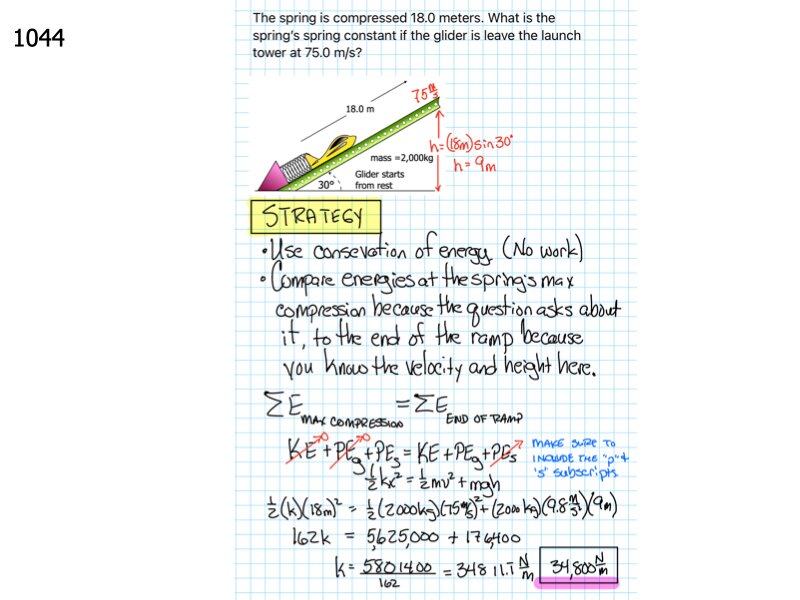 1044
The spring is compressed 18.0 meters. What is the
spring's spring constant if the glider is leave the launch
tower at 75.0 m/s?
75 m/s
18.0 m
h=(18m)sin30°
mass =2,000kg
h=9m
Glider starts
30°
from rest
STRATEGY
•Use consevation of energy (No work)
•Compare energies at the spring's max
compression because the question asks about
it, to the end of the ramp because
you know the velocity and height here.
ΣE MAX COMPRESSION = ΣE END OF RAMP
KE→0 + PEg→0 + PEs = KE + PEg + PEs
MAKE SURE TO
INCLUDE THE "P" &
's' subscripts
½kx² = ½mv² + mgh
½(k)(18m)² = ½(2000kg)(75 m/s)² + (2000 kg)(9.8 m/s²)(9m)
162k = 5,625,000 + 176,400
k = 5801400/162 = 34811.1 N/m 34,800 N/m